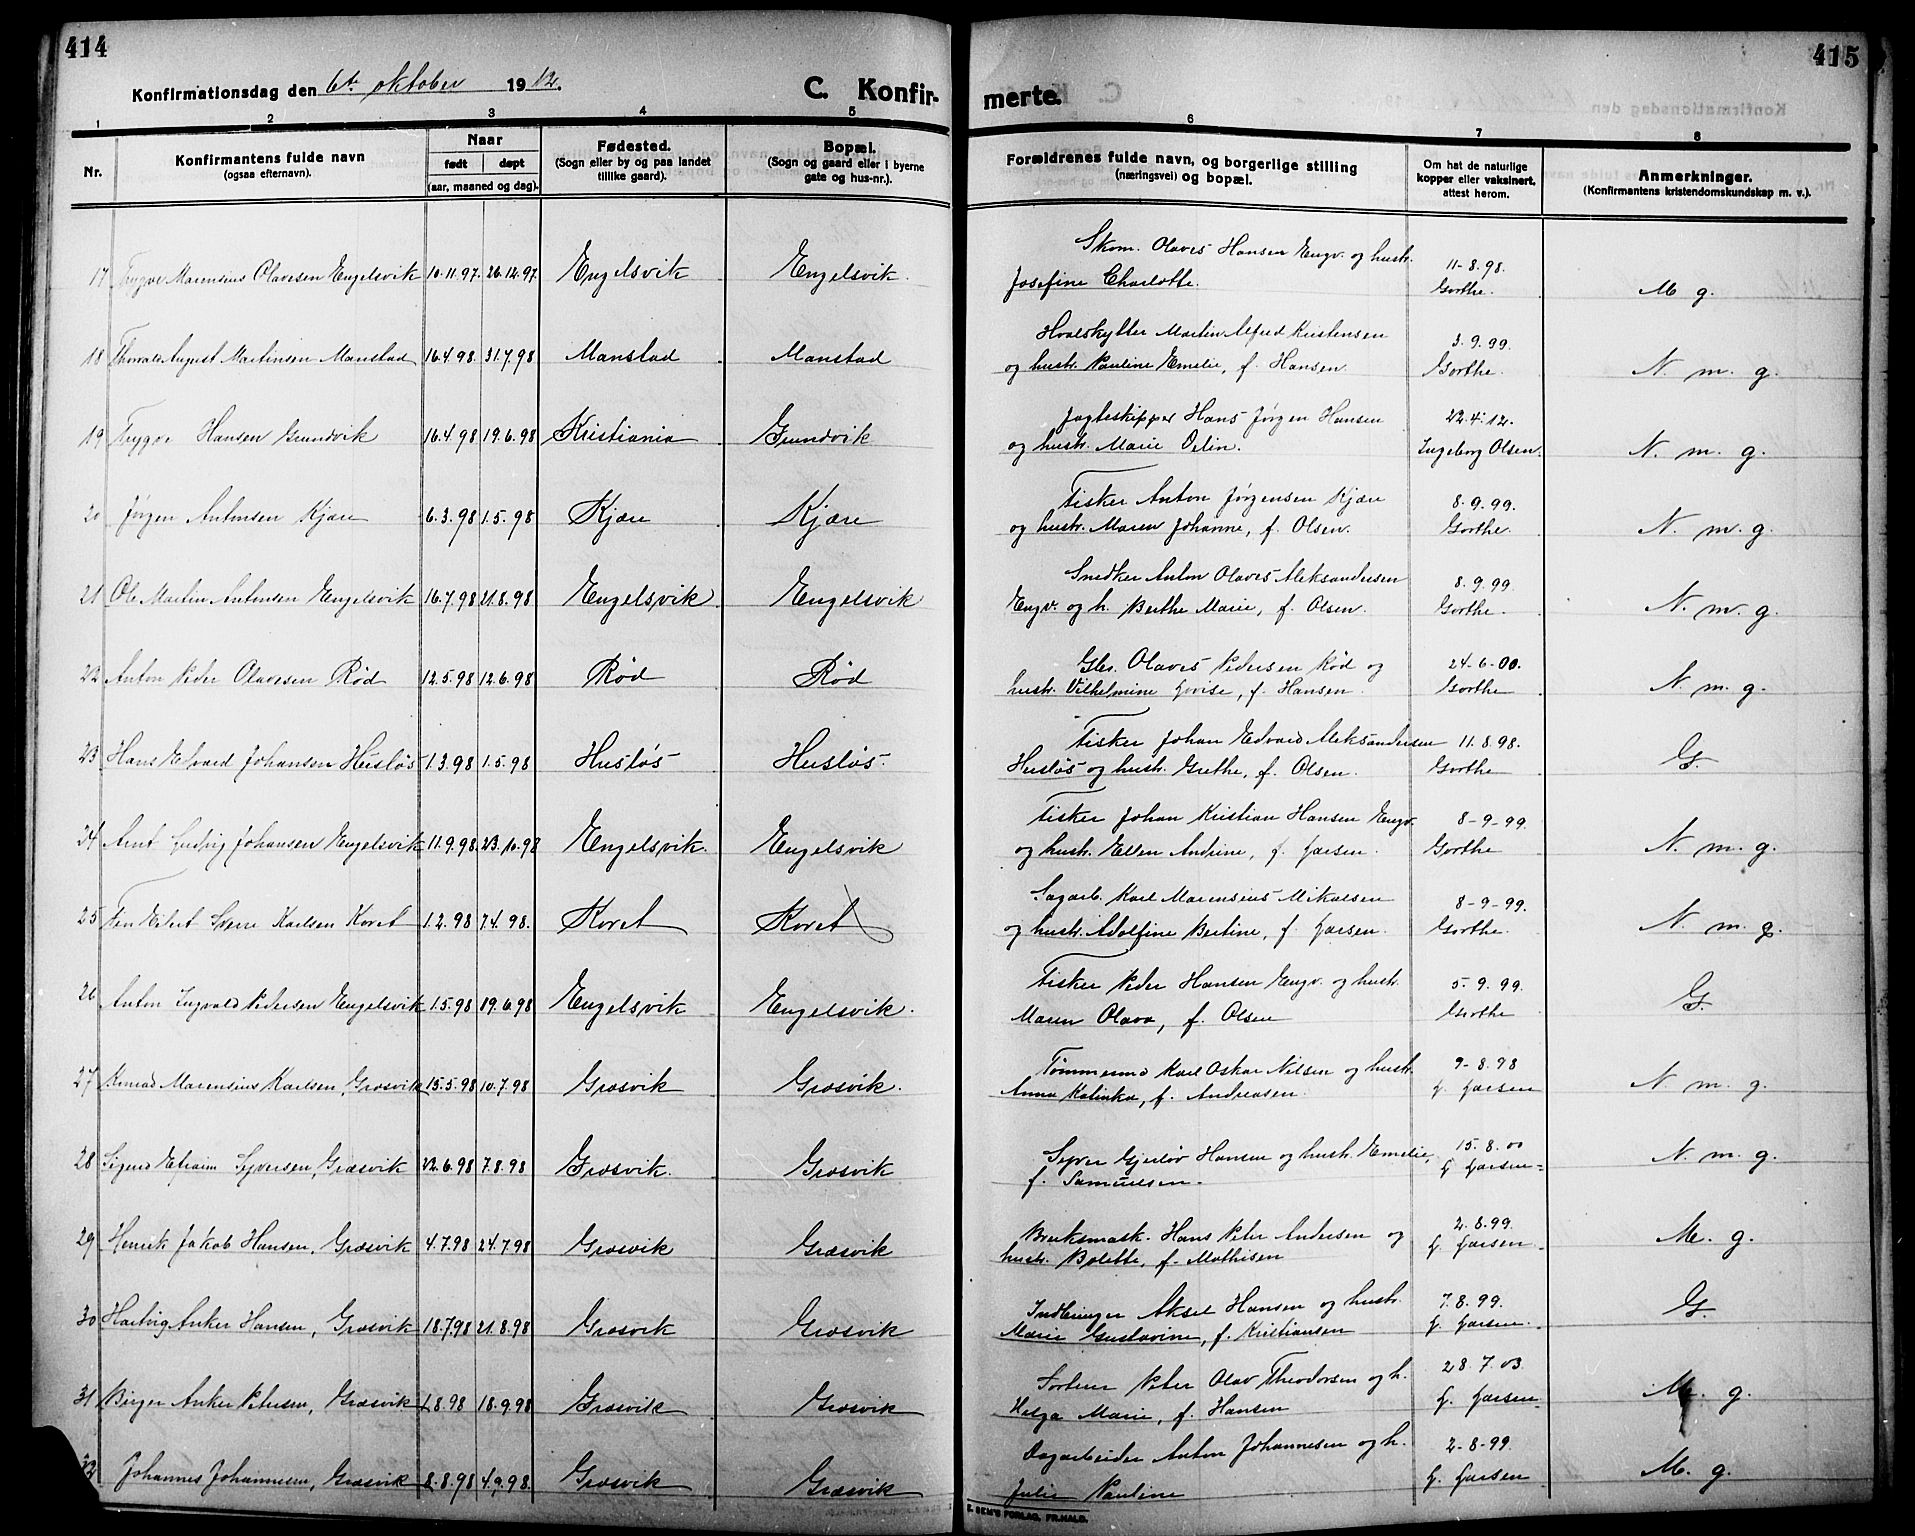 414
415
Konfirmationsdag den 6te oktober 1912.
C. Konfirmerte.
1 2 3 4 5 6 7 8
Nr.
Konfirmantens fulde navn
(ogsaa efternavn).
Naar
født døpt
(aar, maaned og dag).
Fødested.
(Sogn eller by og paa landet
tillike gaard).
Bopæl.
(Sogn og gaard eller i byerne
gate og hus-nr.).
Forældrenes fulde navn, og borgerlige stilling
(næringsvei) og bopæl.
Om hat de naturlige
kopper eller vaksinert,
attest herom.
Anmerkninger.
(Konfirmantens kristendomskundskap m. v.).
17 Trygve Marensius Olavesen Engelsvik 10.11.97. 26.12.97. Engelsvik Engelsvik. Skom. Olaves Hansen Engv. og hustr. 11-8.98.
Josefine Charlotte. Gorthe. M g.
18 Thorvald August Martinsen Manstad 16.4.98 31.7.98 Manstad Manstad Hvalskytter Martin Alfred Kristensen 3.9.99.
og hustr. Pauline Emelie, f. Hansen. Gorthe. N. m. g.
19 Trygve Hansen Grundvik 16.4.98 19.6.98 Kristiania Grundvik Jagteskipper Hans Jørgen Hansen 22.4.12.
og hustr. Marie Ovlin. Ingeborg Olsen. N. m. g.
20 Jørgen Antonsen Kjære 6.3.98 1.5.98 Kjære Kjære Fisker Anton Jørgensen Kjære 8.9.99.
og hustr. Maren Johanne, f. Olsen. Gorthe. N. m. g.
21 Ole Martin Antonsen Engelsvik 16.7.98 21.8.98 Engelsvik. Engelsvik Snedker Anton Olaves Aleksandersen 8.9.99.
Engv. og h. Berthe Marie, f. Olsen. Gorthe. N. m. g.
22 Anton Peder Olavesen Rød 12.5.98 12.6.98 Rød Rød Gbr. Olaves Pedersen Rød og 24-6-00.
hustr. Vilhelmine Lovise, f. Hansen. Gorthe N. m. g.
23 Hans Edvard Johansen Husløs 1.3.98 1.5.98 Husløs Husløs. Fisker Johan Edvard Aleksandersen 11.8.98.
Husløs og hustr. Grethe, f. Olsen. Gorthe G.
24 Arnt Ludvig Johansen Engelsvik 11.9.98 23.10.98 Engelsvik. Engelsvik Fisker Johan Kristian Hansen Engv. 8-9-99.
og hustr. Ellen Andrine, f. Larsen. Gorthe N. m. g.
25 Finn Eilert Sverre Karlsen Koret 1.2.98 7.4.98. Koret Koret Sagarb. Karl Marensius Mikalsen 8-9-99.
og hustr. Adolfine Bertine, f. Larsen. Gorthe. N. m. g.
26 Anton Ingvald Pedersen Engelsvik 1.5.98 19.6.98 Engelsvik Engelsvik. Fisker Peder Hansen Engv. og hustr. 5.9.99.
Maren Olava, f. Olsen Gorthe G.
27 Konrad Marensius Karlsen, Græsvik 15.5.98 10.7.98 Græsvik Græsvik. Tømmerm. Karl Oskar Nilsen og hustr. 9-8.98
Anna Katinka, f. Andreasen. L. Larsen N. m. g.
28 Sigurd Efraim Syversen, Græsvik 22.6.98 7.8.98 Græsvik. Græsvik Syver Gjerløv Hansen og hustr. Emelie, 15.8.00
f. Samuelsen. L. Larsen N. m. g.
29 Henrik Jakob Hansen, Græsvik 4.7.98 24.7.98 Græsvik Græsvik Bruksmask. Hans Peter Andersen og 2.8.99.
hustr. Bolette, f. Mathisen L. Larsen M. g.
30 Hartvig Anker Hansen, Græsvik 18.7.98 21.8.98 Græsvik Græsvik Indbringer Aksel Hansen og hustr. 7.8.99.
Marie Gustavine, f. Kristiansen L. Larsen. G.
31 Birger Anker Petersen, Græsvik 1.8.98 18.9.98 Græsvik Græsvik Sorterer Peter Olav Theodorsen og h. 28.7.03
Helga Marie, f. Hansen L. Larsen M. g.
32 Johannes Johannesen, Græsvik 2.8.98 4.9.98. Græsvik Græsvik Dagarbeider Anton Johannesen og h. 2-8-99.
Julie Pauline L. Larsen M. g.
E. SEM'S FORLAG, FR.HALD.